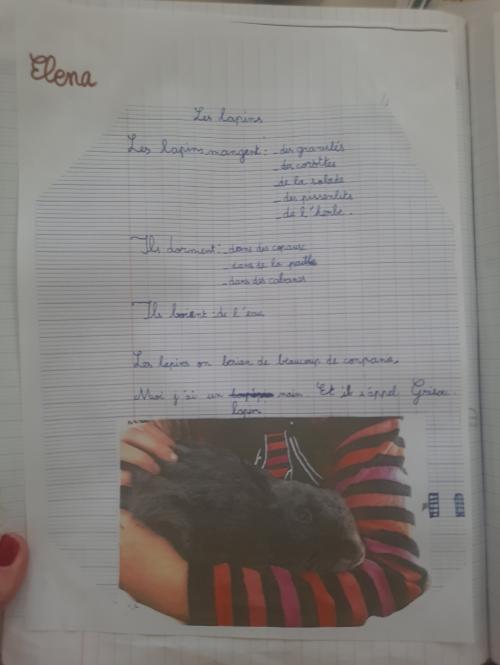 Elena
Les lapins
Les lapins mangent : - des granulés
- des carottes
- de la salade
- des pissenlits
- de l'herbe.
Ils dorment : - dans des copaux
- dans de la paille
- dans des cabanes
Ils boient : de l'eau
Les lapins on besoin de beaucoup de conpans.
Moi j'ai un nain. Et il s'appel
lapin